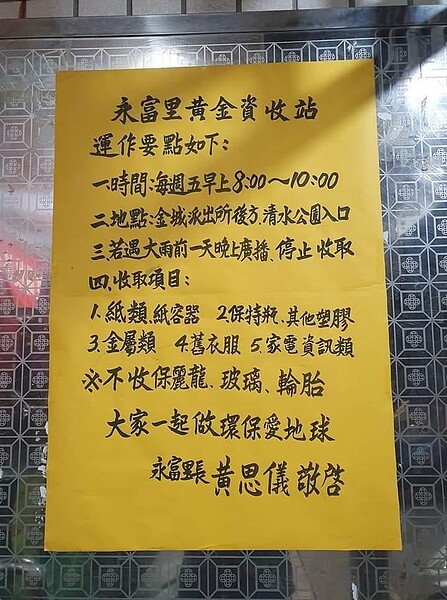 永富里黃金資收站
運作要點如下:
一、時間:每週五早上8:00~10:00
二、地點:金城派出所後方,清水公園入口
三、若遇大雨前一天晚上廣播、停止收取
四、收取項目:
1.紙類、紙容器 2.保特瓶、其他塑膠
3.金屬類 4.舊衣服 5.家電資訊類
※不收保麗龍、玻璃、輪胎
大家一起做環保愛地球
永富里長黃思儀 敬啓